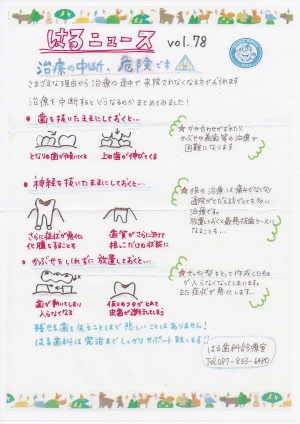 はるニュース vol.78
治療の中断、危険です
さまざまな理由から治療の途中で来院されなくなる方がみられます
治療を中断するとどうなるのかまとめてみました!
• 歯を抜いたままにしておくと…
となりの歯が傾いてくる
上の歯が伸びてくる
★かみ合わせがずれたり、
かぶせや義歯等の治療が
困難になります
• 神経を抜いたままにしておくと…
さらに症状が悪化
化膿することも
歯質がさらに割れて
根っこだけの状態に
★根の治療は痛みがなくなり
通院がとだえがちでとても多い
治療です。
放置しておくと最悪抜歯ケースに
なることも…
• かぶせをしれずに放置しておくと…
歯が動いてしまい
入らなくなる
仮りのフタがとれて
虫歯が進行してしまう
★せっかく型をとって作製したもの
が入らなくなってしまいます。
また症状が悪化します…
残せる歯を失うことほど悲しいことはありません!
はる歯科は完治までしっかりサポート致します!!
はる歯科診療室
Tel.087-833-6480